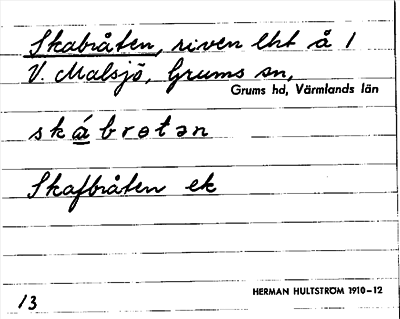 Skabråten, riven lht å 1
V. Malsjö, Grums sn,
Grums hd, Värmlands län
skábrɵtən
Skafbråten ek
HERMAN HULTSTRÖM 1910–12
13